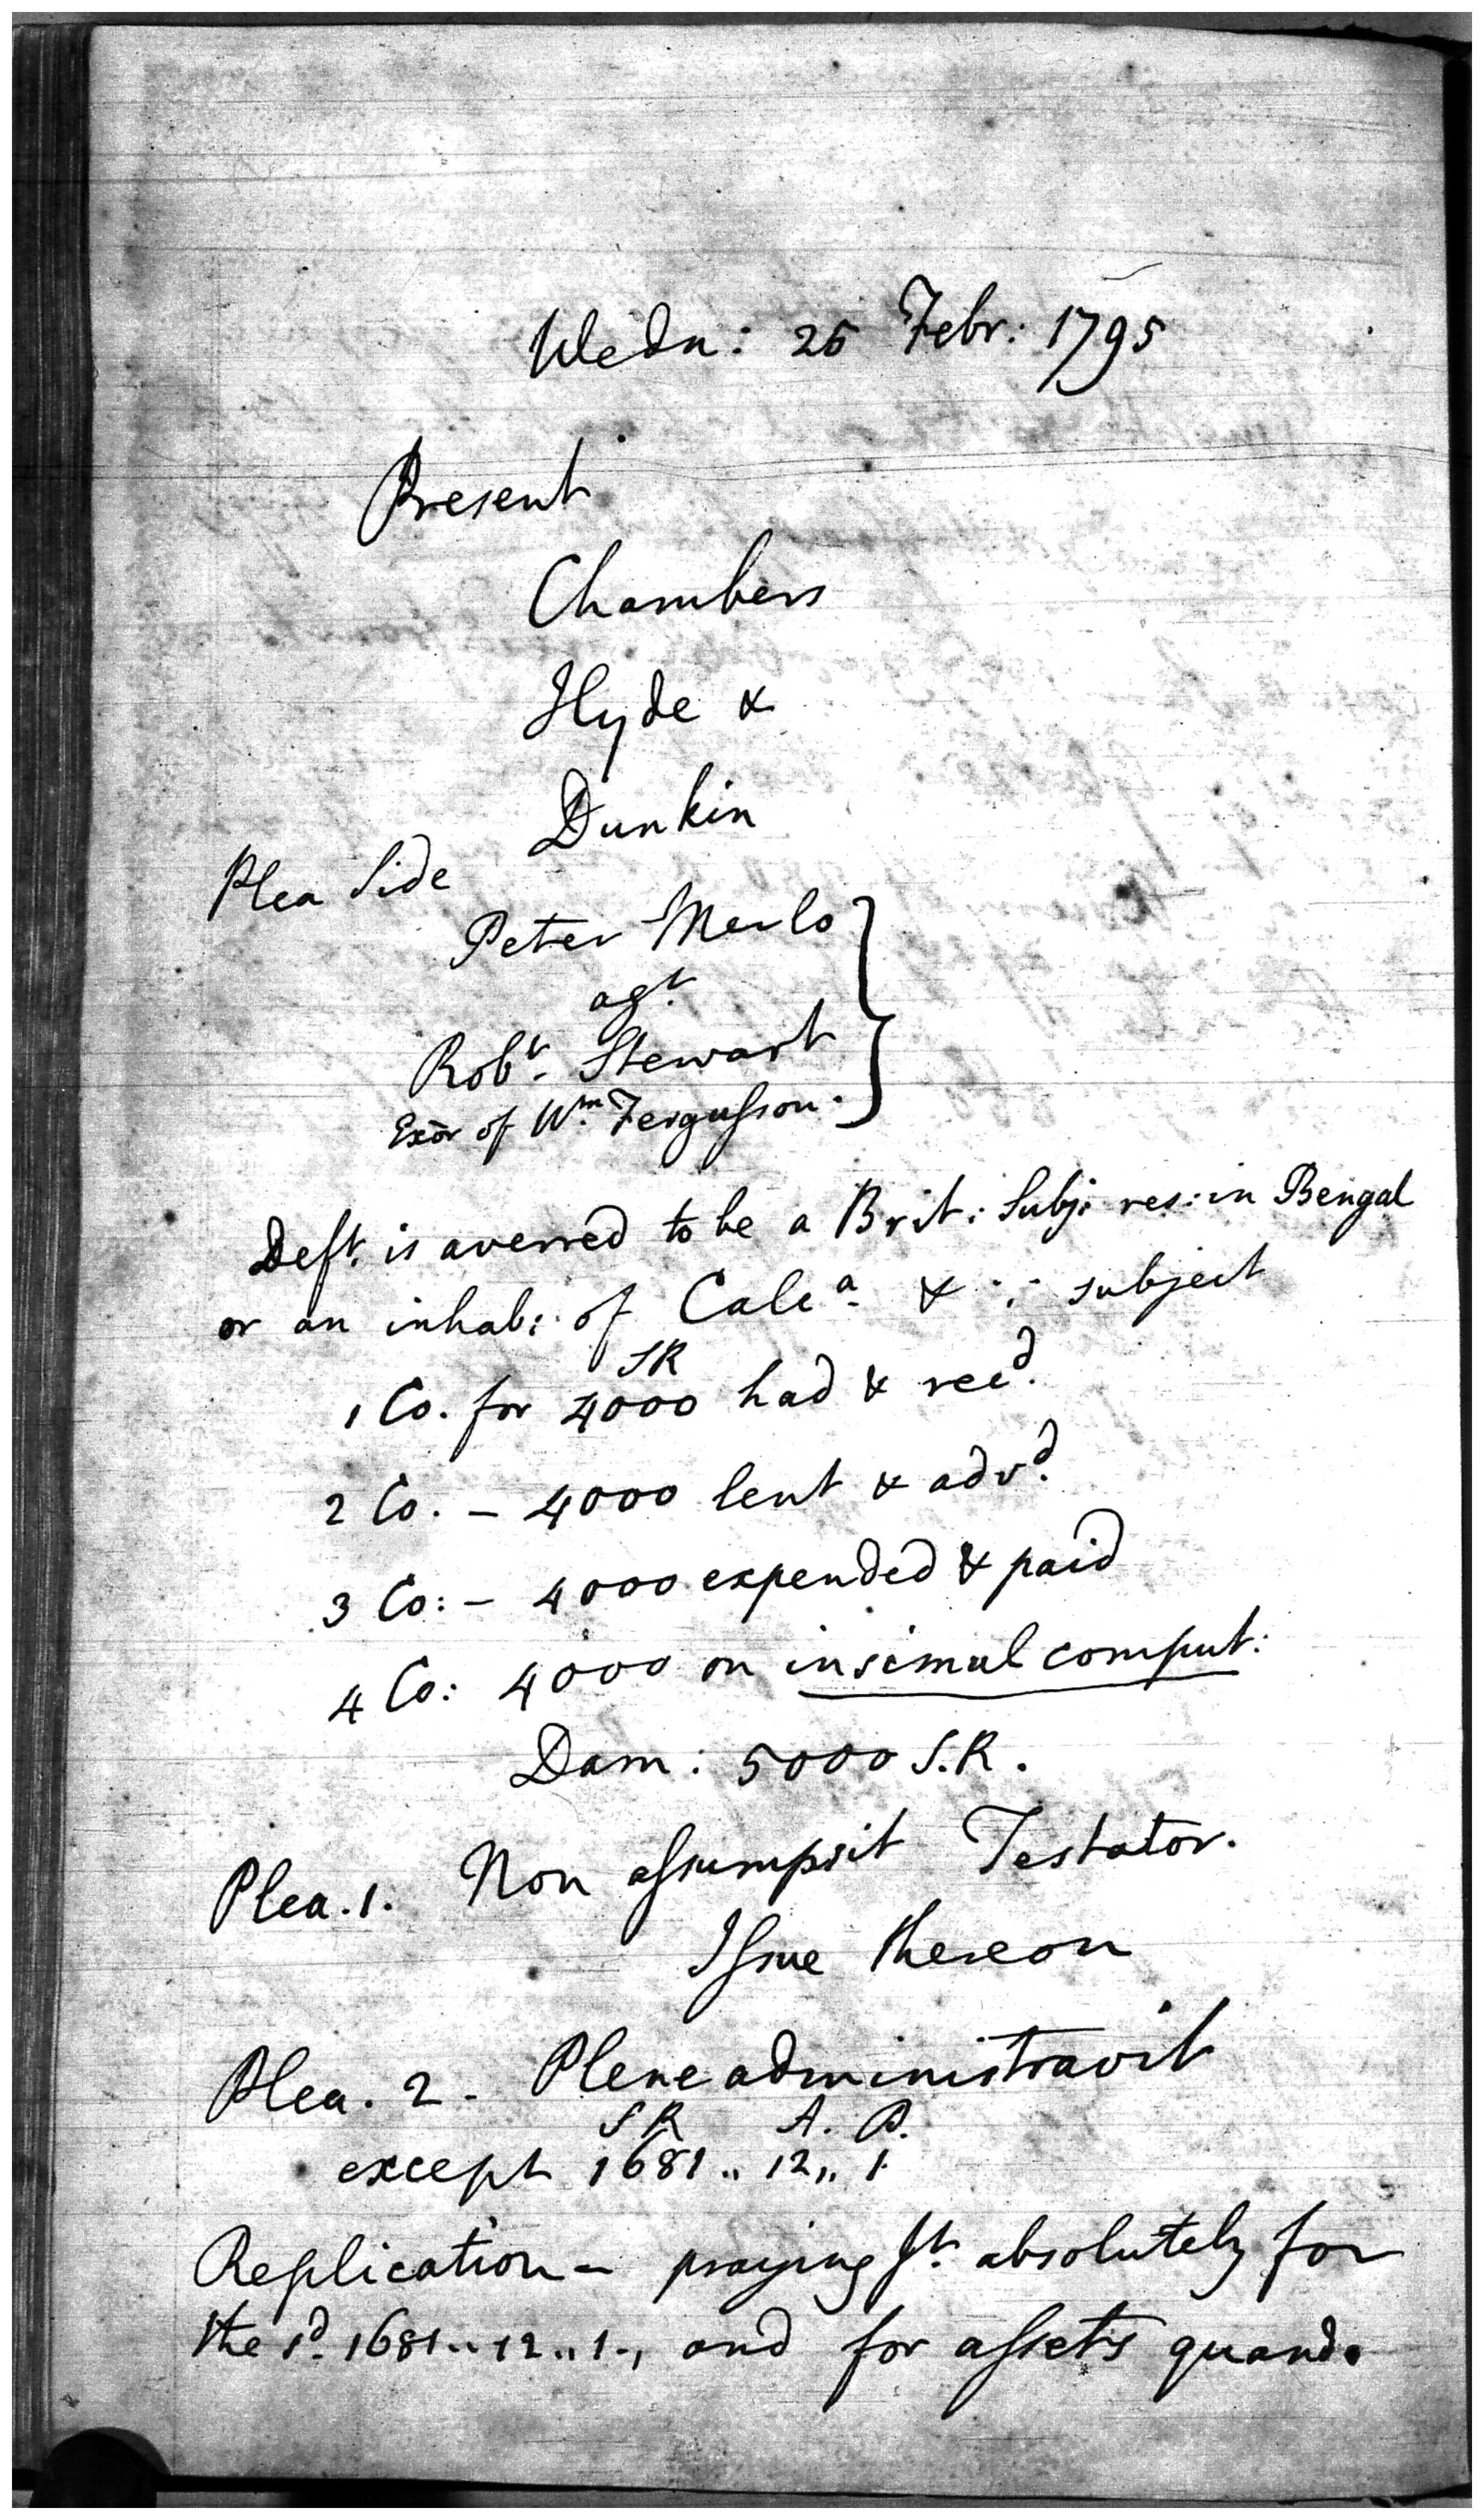 Wedn: 25 Febr: 1795
Present
Chambers
Hyde &
Dunkin
Plea Side
Peter Merlo
agt.
Robt. Stewart
Exor of Wm. Fergusson.
Deft. is averred to be a Brit: Subj: res: in Bengal
or an inhab: of Calca. & ∴ subject
SR
1 Co. for 4000 had & recd.
2 Co. - 4000 lent & advd.
3 Co: - 4000 expended & paid
4 Co: 4000 on insimul comput:
Dam: 5000 S.R.
Plea. 1. Non assumpsit Testator.
Issue thereon
Plea. 2 - Plene administravit
SR A. P.
except 1681 „ 12 „ 1
Replication - praying Jt. absolutely for
the sd. 1681 „ 12 „ 1 -, and for assets quando